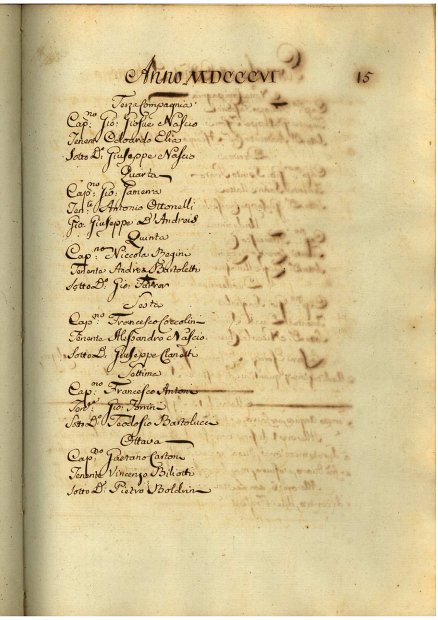 Anno MDCCCVI 15
Terza Compagnia
Cap.no Gio: Giosuè Nascio
Tenente Odoardo Elia
Sotto D.e Giuseppe Nascio
Quarta
Cap.no Gio:
Ten.te Antonio Ottonelli
Gio: Giuseppe D'Andreis
Quinta
Cap.no Niccola Begini
Tenente Andrea Bartoletti
Sotto D.e Gio:
Sesta
Cap.no Francesco
Tenente Alessandro Nascio
Sotto D.e Giuseppe Cianetti
Settima
Cap.no Francesco Antoni
Ten.te Gio:
Sotto D.e Teodosio Bartolucci
Ottava
Cap.no Gaetano Castoni
Tenente Vincenzo Biliotti
Sotto D.e Pietro Boldrin